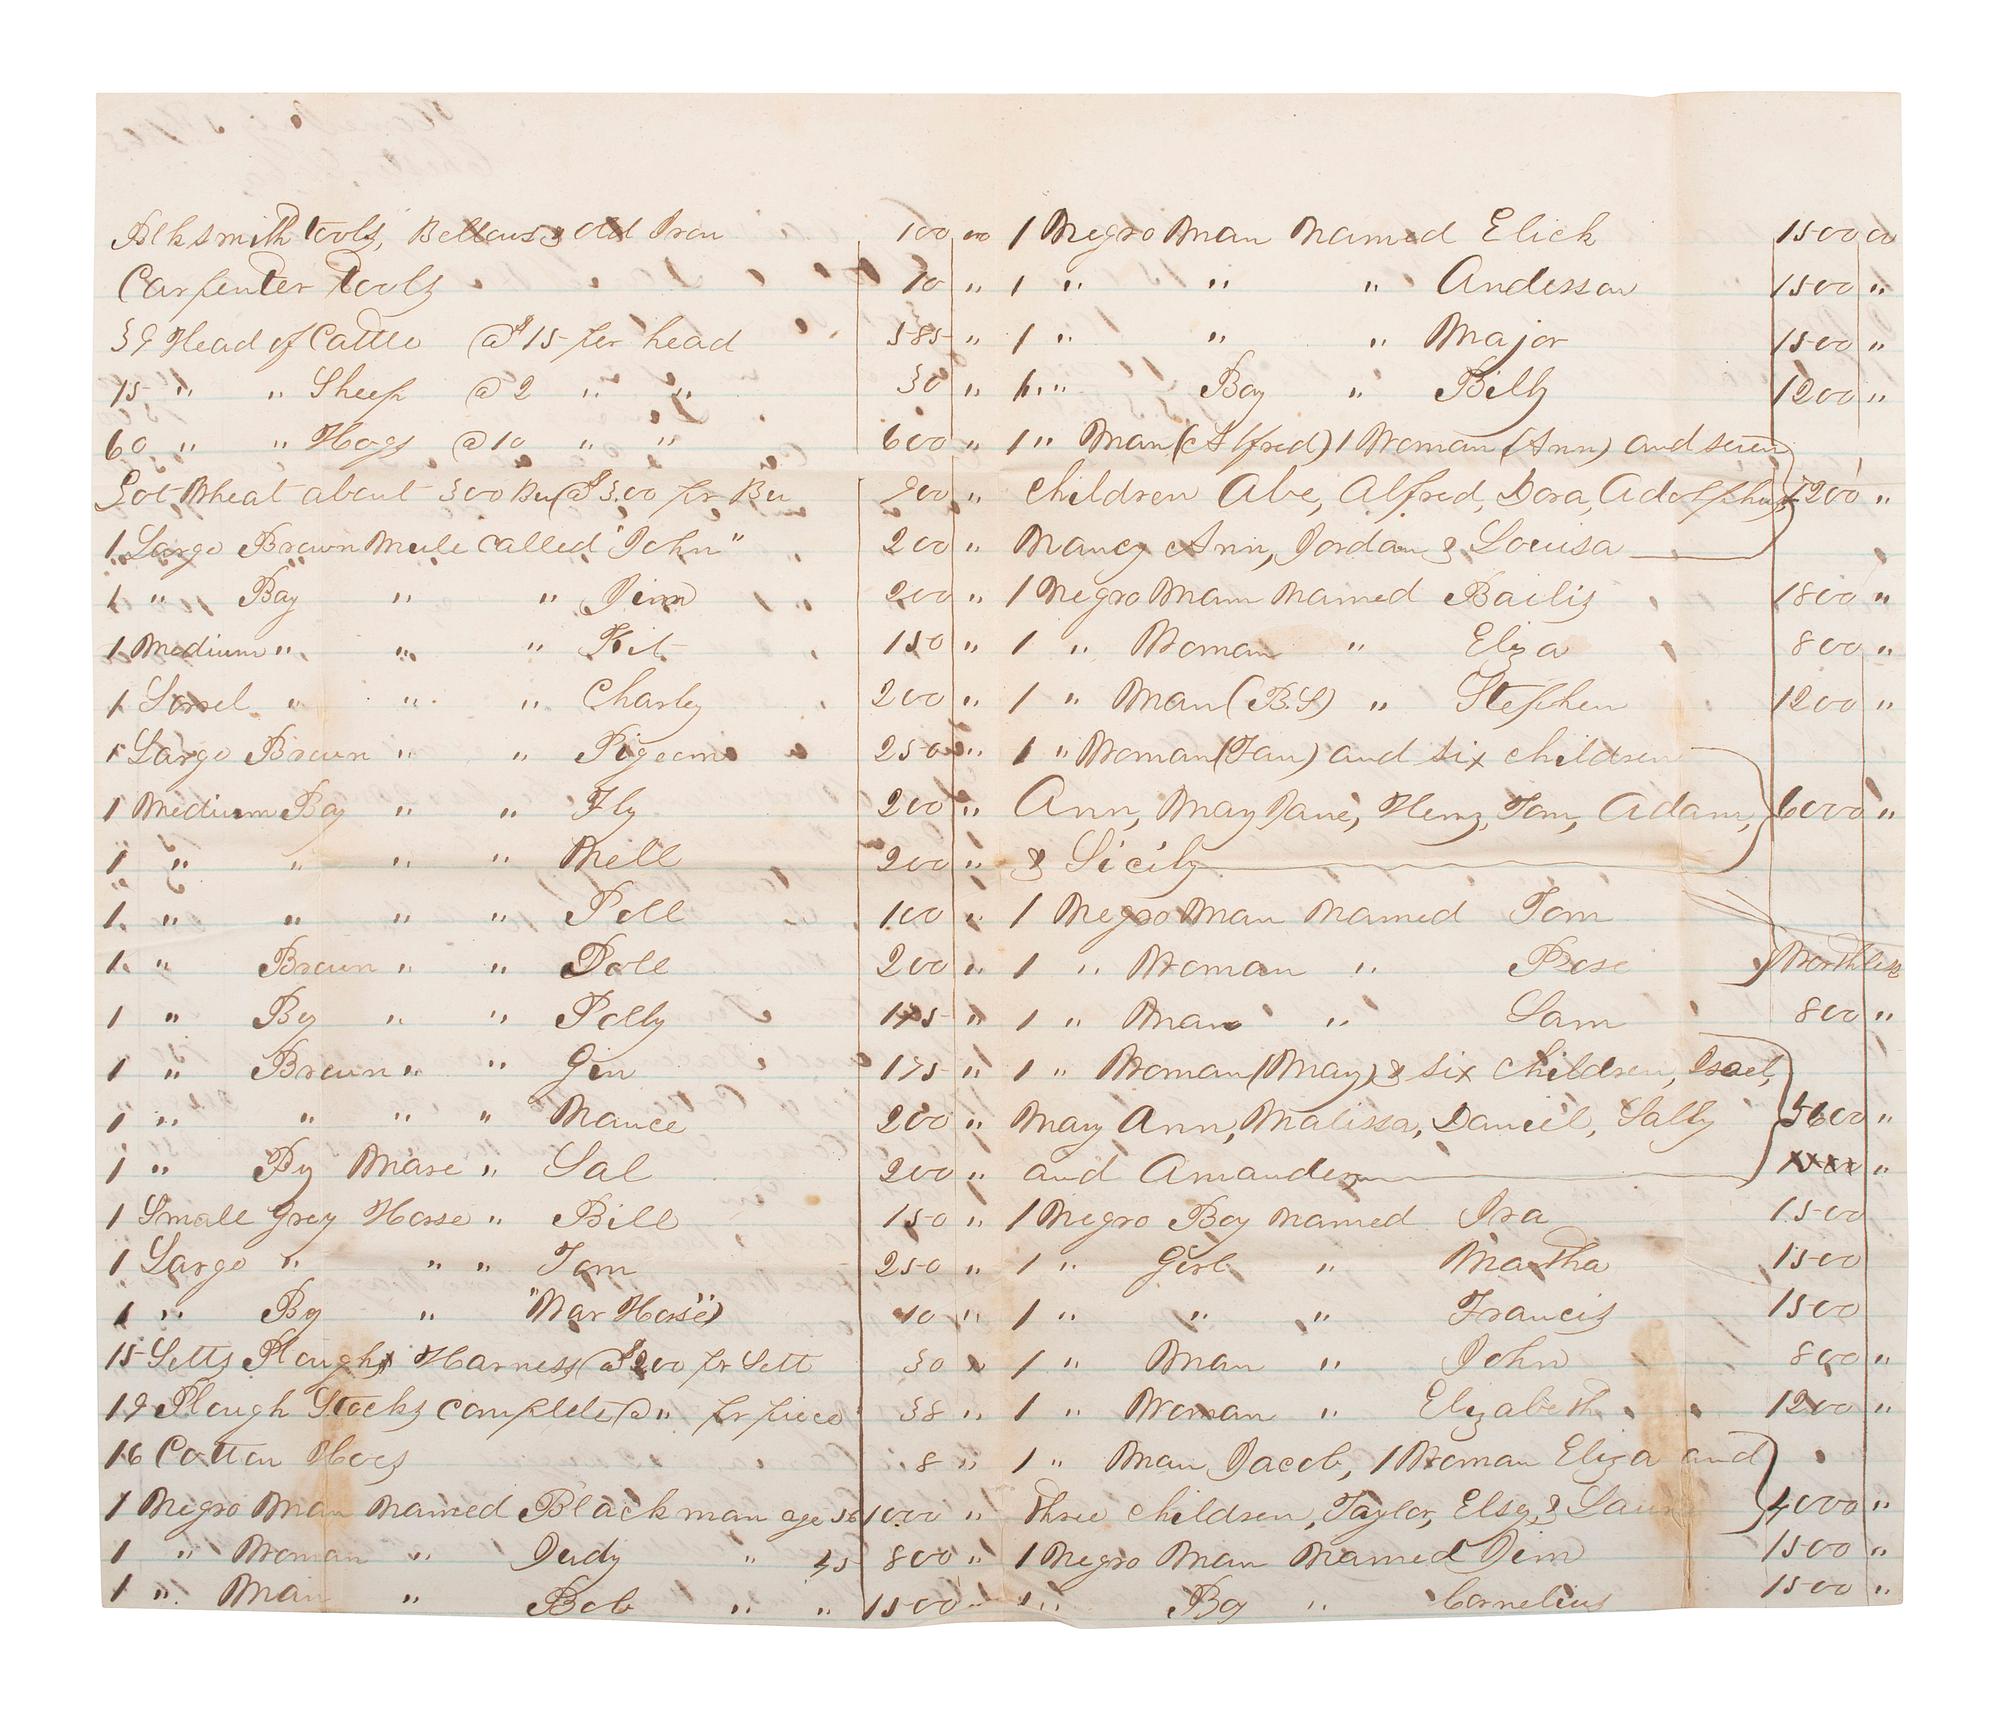 Blksmith tools, Bellows & Old Iron 100 00
Carpenter Tools 10 "
39 Head of Cattle @ $15 per head 585 "
15 " " Sheep @ 2 " " 30 "
60 " " Hogs @ 10 " " 600 "
Lot Wheat about 300 Bu @ $3.00 pr Bu 900 "
1 Large Brown Mule called "John" 200 "
1 " Bay " " Jim 200 "
1 Medium " " " Kit 150 "
1 Sorrel " " " Charley 200 "
1 Large Brown " " Pigeon 250 "
1 Medium Bay " " Fly 200 "
1 " " " " Nell 200 "
1 " " " " Poll 100 "
1 " Brown " " Doll 200 "
1 " By " " Polly 175 "
1 " Brown " " Gin 175 "
1 " " " " Nance 200 "
1 " By Mare " Sal 200 "
1 Small Grey Horse " Bill 150 "
1 Large " " " Tom 250 "
1 " By " "War Horse" 10 "
15 Setts Plough Harness @ $2.00 pr Sett 30 "
19 Plough Stocks complete @ " pr piece 38 "
16 Cotton Hoes 8 "
1 Negro Man Named Blackman age 56 1000 "
1 " Woman " Judy " 45 800 "
1 " Man " Bob " " 1500 "
1 Negro Man Named Elick 1500 00
1 " " " Anderson 1500 "
1 " " " Major 1500 "
1 " Boy " Billy 1200 "
1 " Man (Alfred) 1 Woman (Ann) and seven
children Abe, Alfred, Dora, Adolphus, 7200 "
Nancy Ann, Jordan & Louisa
1 Negro Man Named Bailis 1800 "
1 " Woman " Eliza 800 "
1 " Man (B.S) " Stephen 1200 "
1 " Woman (Fan) and six children
Ann, May Jane, Henry, Tom, Adam, 6000 "
& Sicily
1 Negro Man Named Tom
1 " Woman " Rose Worthless
1 " Man " Sam 800 "
1 " Woman (May) & six children, Israel,
Mary Ann, Malissa, Daniel, Sally 5600 "
and Amander "
1 Negro Boy Named Ira 1500
1 " Girl " Martha 1500
1 " " " Francis 1500
1 " Man " John 800 "
1 " Woman " Elizabeth 1200 "
1 " Man Jacob, 1 Woman Eliza and
three children, Taylor, Elsy, & Laura 4000 "
1 Negro Man Named Jim 1500 "
1 " Boy " Cornelius 1500 "